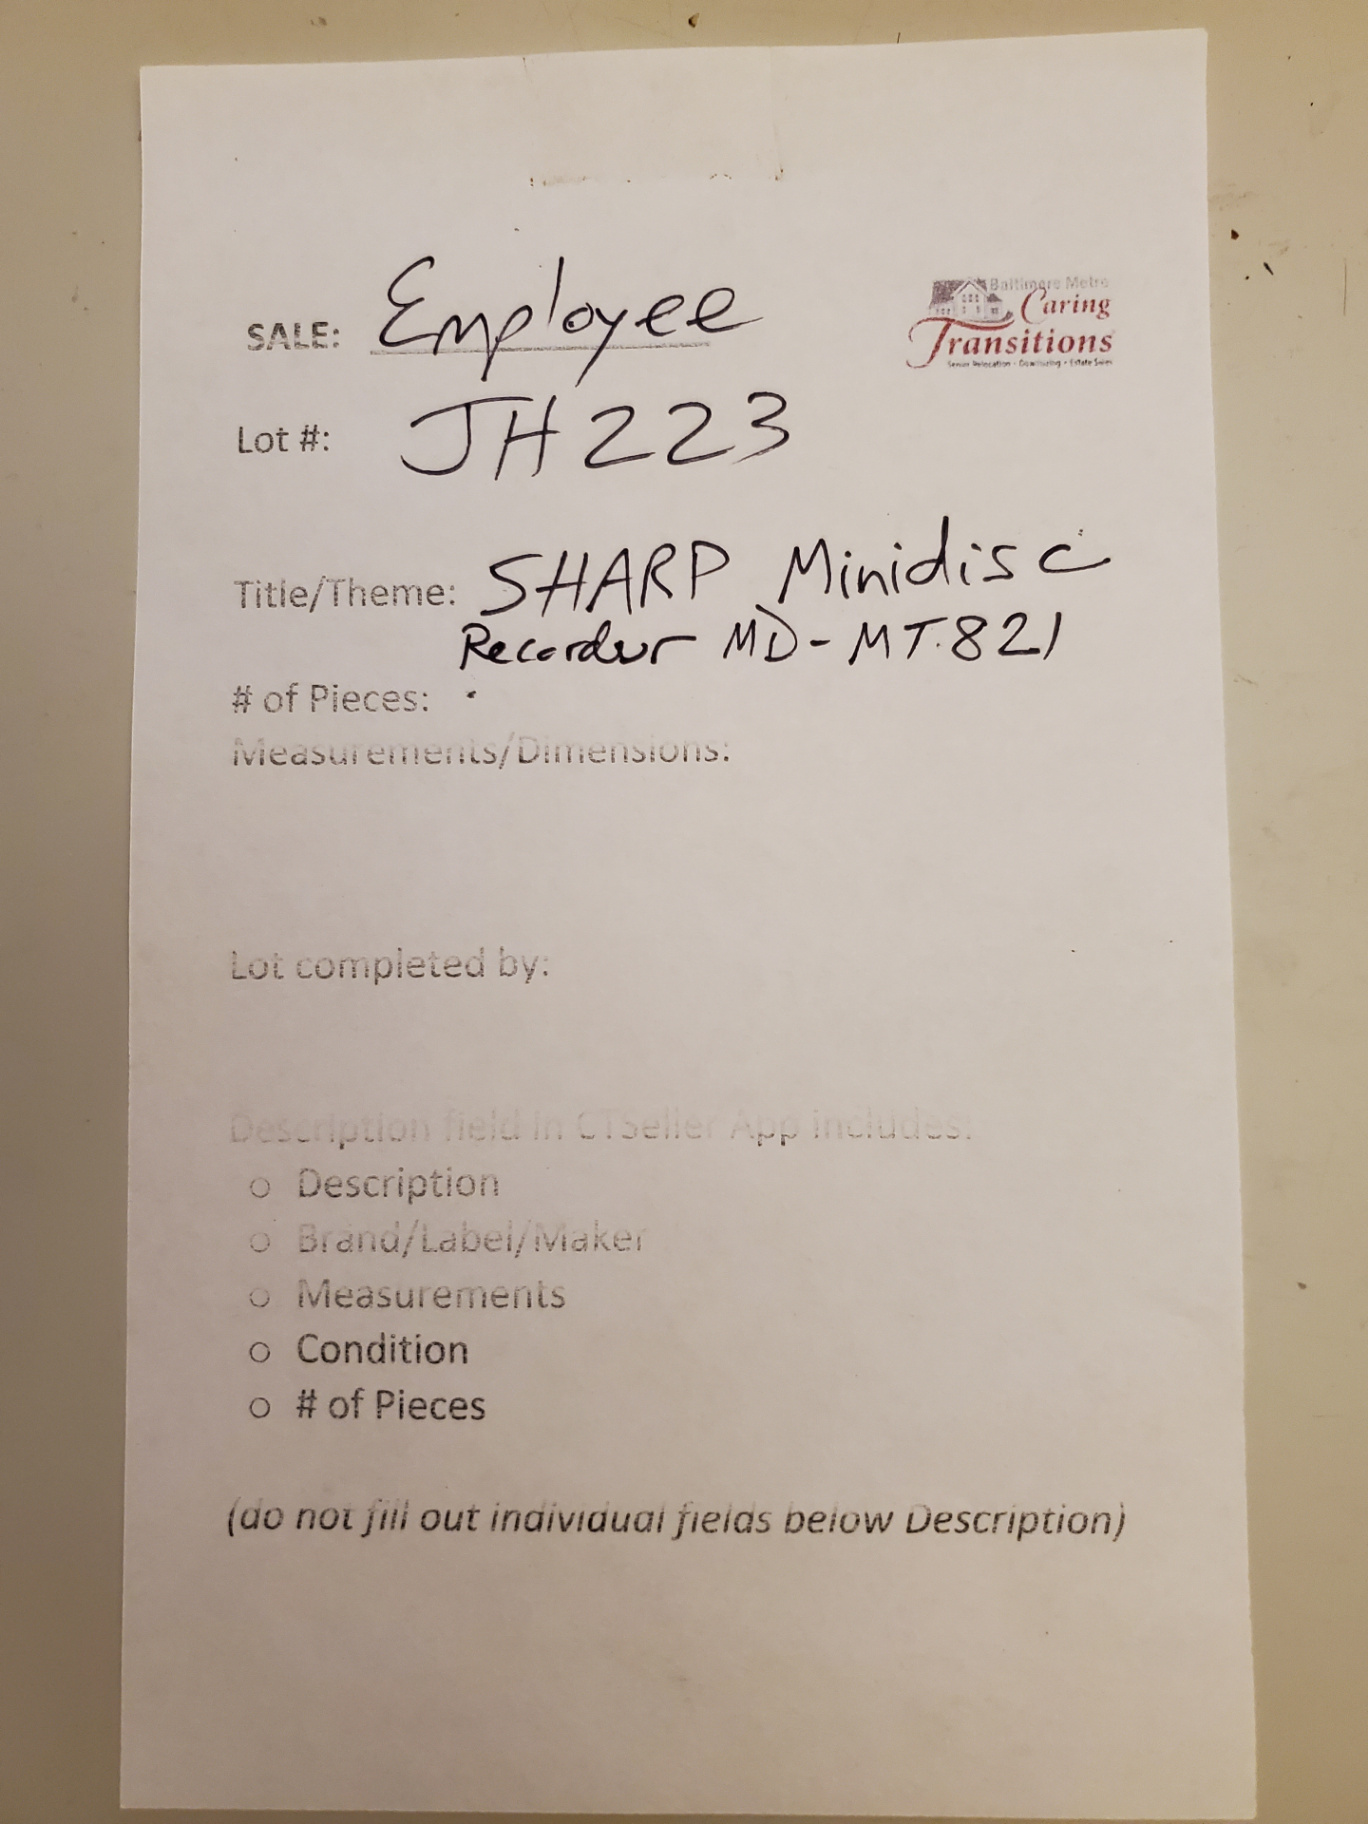 Baltimore Metro
Caring
Transitions
Senior Relocation • Downsizing • Estate Sales
SALE: Employee
Lot #: JH223
Title/Theme: SHARP Minidisc
Recorder MD-MT.821
# of Pieces:
Measurements/Dimensions:
Lot completed by:
Description field in CTSeller App includes:
o Description
o Brand/Label/Maker
o Measurements
o Condition
o # of Pieces
(do not fill out individual fields below Description)